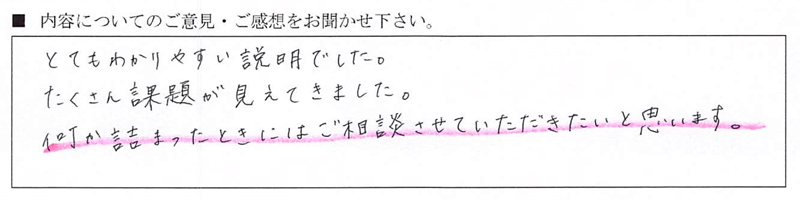 ■ 内容についてのご意見・ご感想をお聞かせ下さい。
とてもわかりやすい説明でした。
たくさん課題が見えてきました。
何か詰まったときにはご相談させていただきたいと思います。